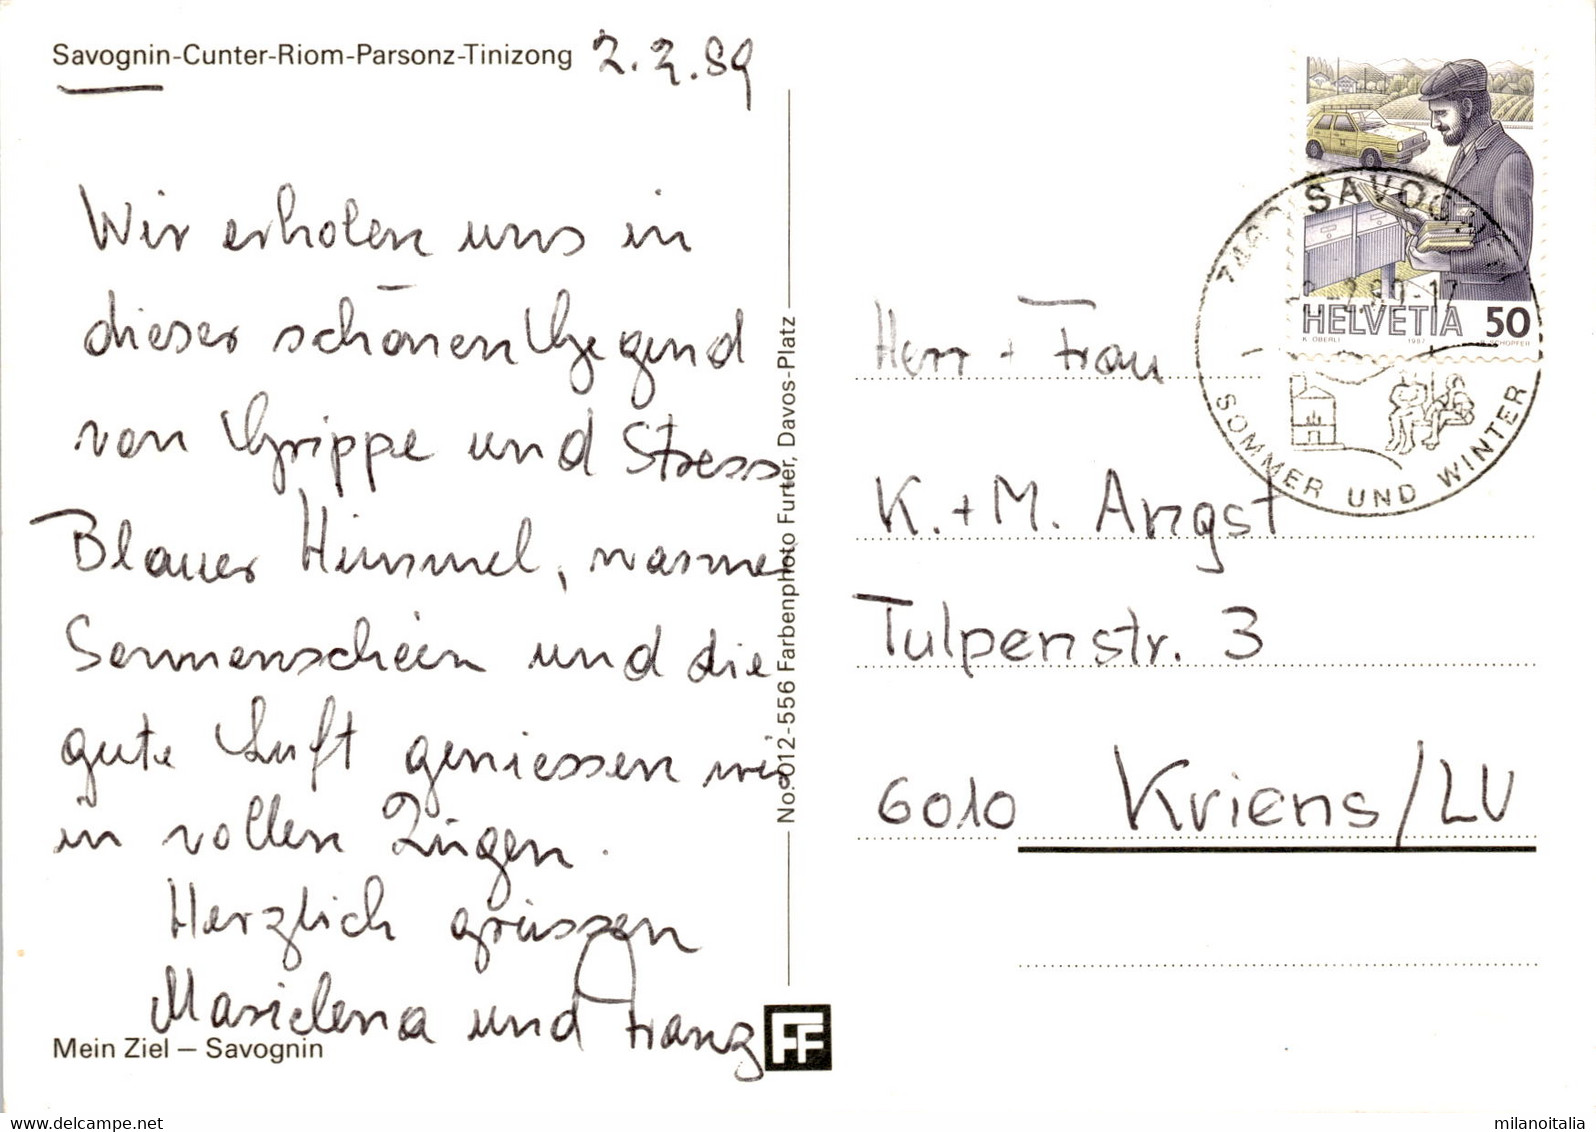 Savognin-Cunter-Riom-Parsonz-Tinizong
2.2.89
Wir erholen uns in
dieser schönen Gegend
von Grippe und Stress
Blauer Himmel, warme
Sonnenschein und die
gute Luft geniessen wir
in vollen Zügen.
Herzlich grüssen
Marielena und Franz
Mein Ziel – Savognin
No. 012-556 Farbenphoto Furter, Davos-Platz
FF
HELVETIA 50
K. OBERLI 1987
SAVOG
SOMMER UND WINTER
Herr + Frau
K. + M. Angst
Tulpenstr. 3
6010 Kriens/LU
milanoitalia